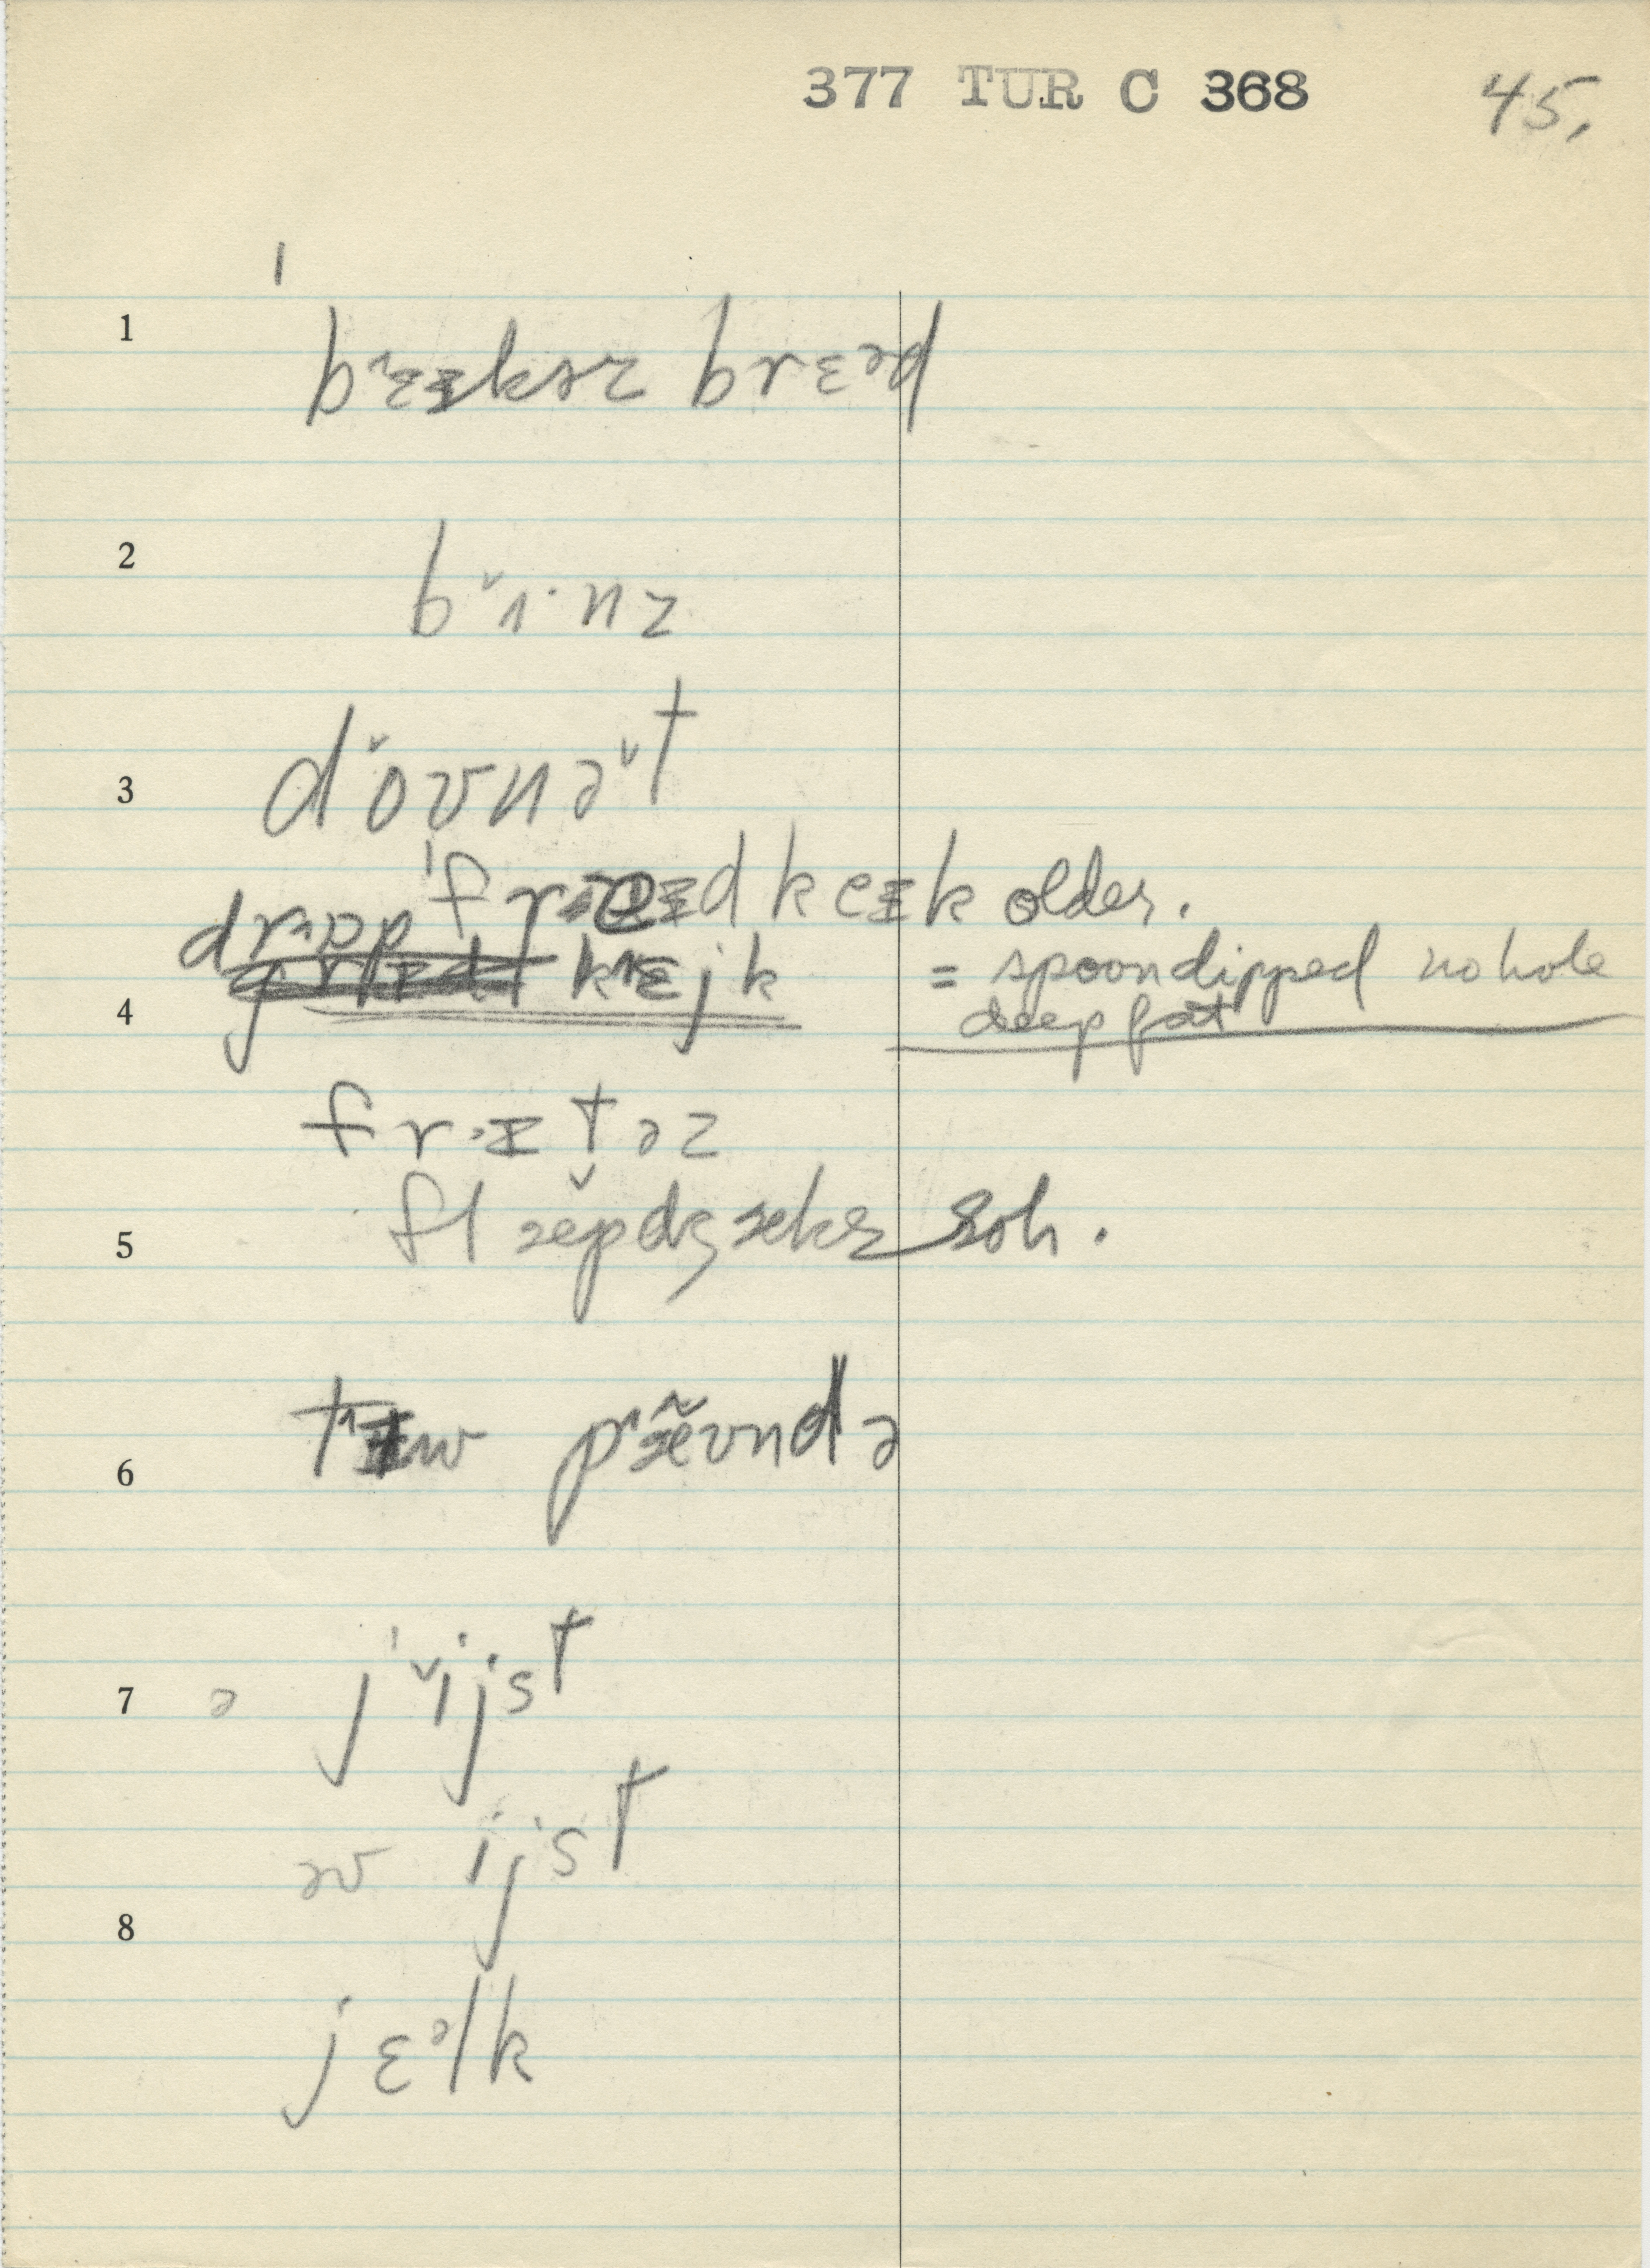 377 TUR C 368 45.
1 bɛɪkɚz brɛəd
2 bˇɪ·nz
3 dˇoʊnəˇt
ˈfraɪd keɪk older.
drɒp
kɛjk = spoondipped no hole
4 deep fat
fr·ɪtəz
5 flæˇpdʒæks soh.
6 tɪw pæ̃ʊndə
7 ə jˇijst
əv ijst
8
jɛᵊlk